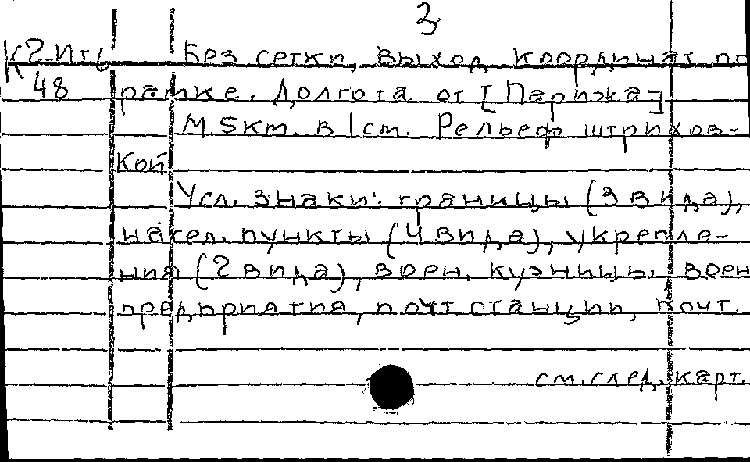 3
К 2-Ит 6 Без сетки, выход координат по
48 рамке. Долгота от [Парижа]
М 5км. в 1см. Рельеф штрихов-
кой
Усл. знаки: границы (3 вида),
насел. пункты (4 вида), укрепле-
ния (2 вида), воен. кузницы, воен
предприятия, почт станции, почт.
см. след. карт.